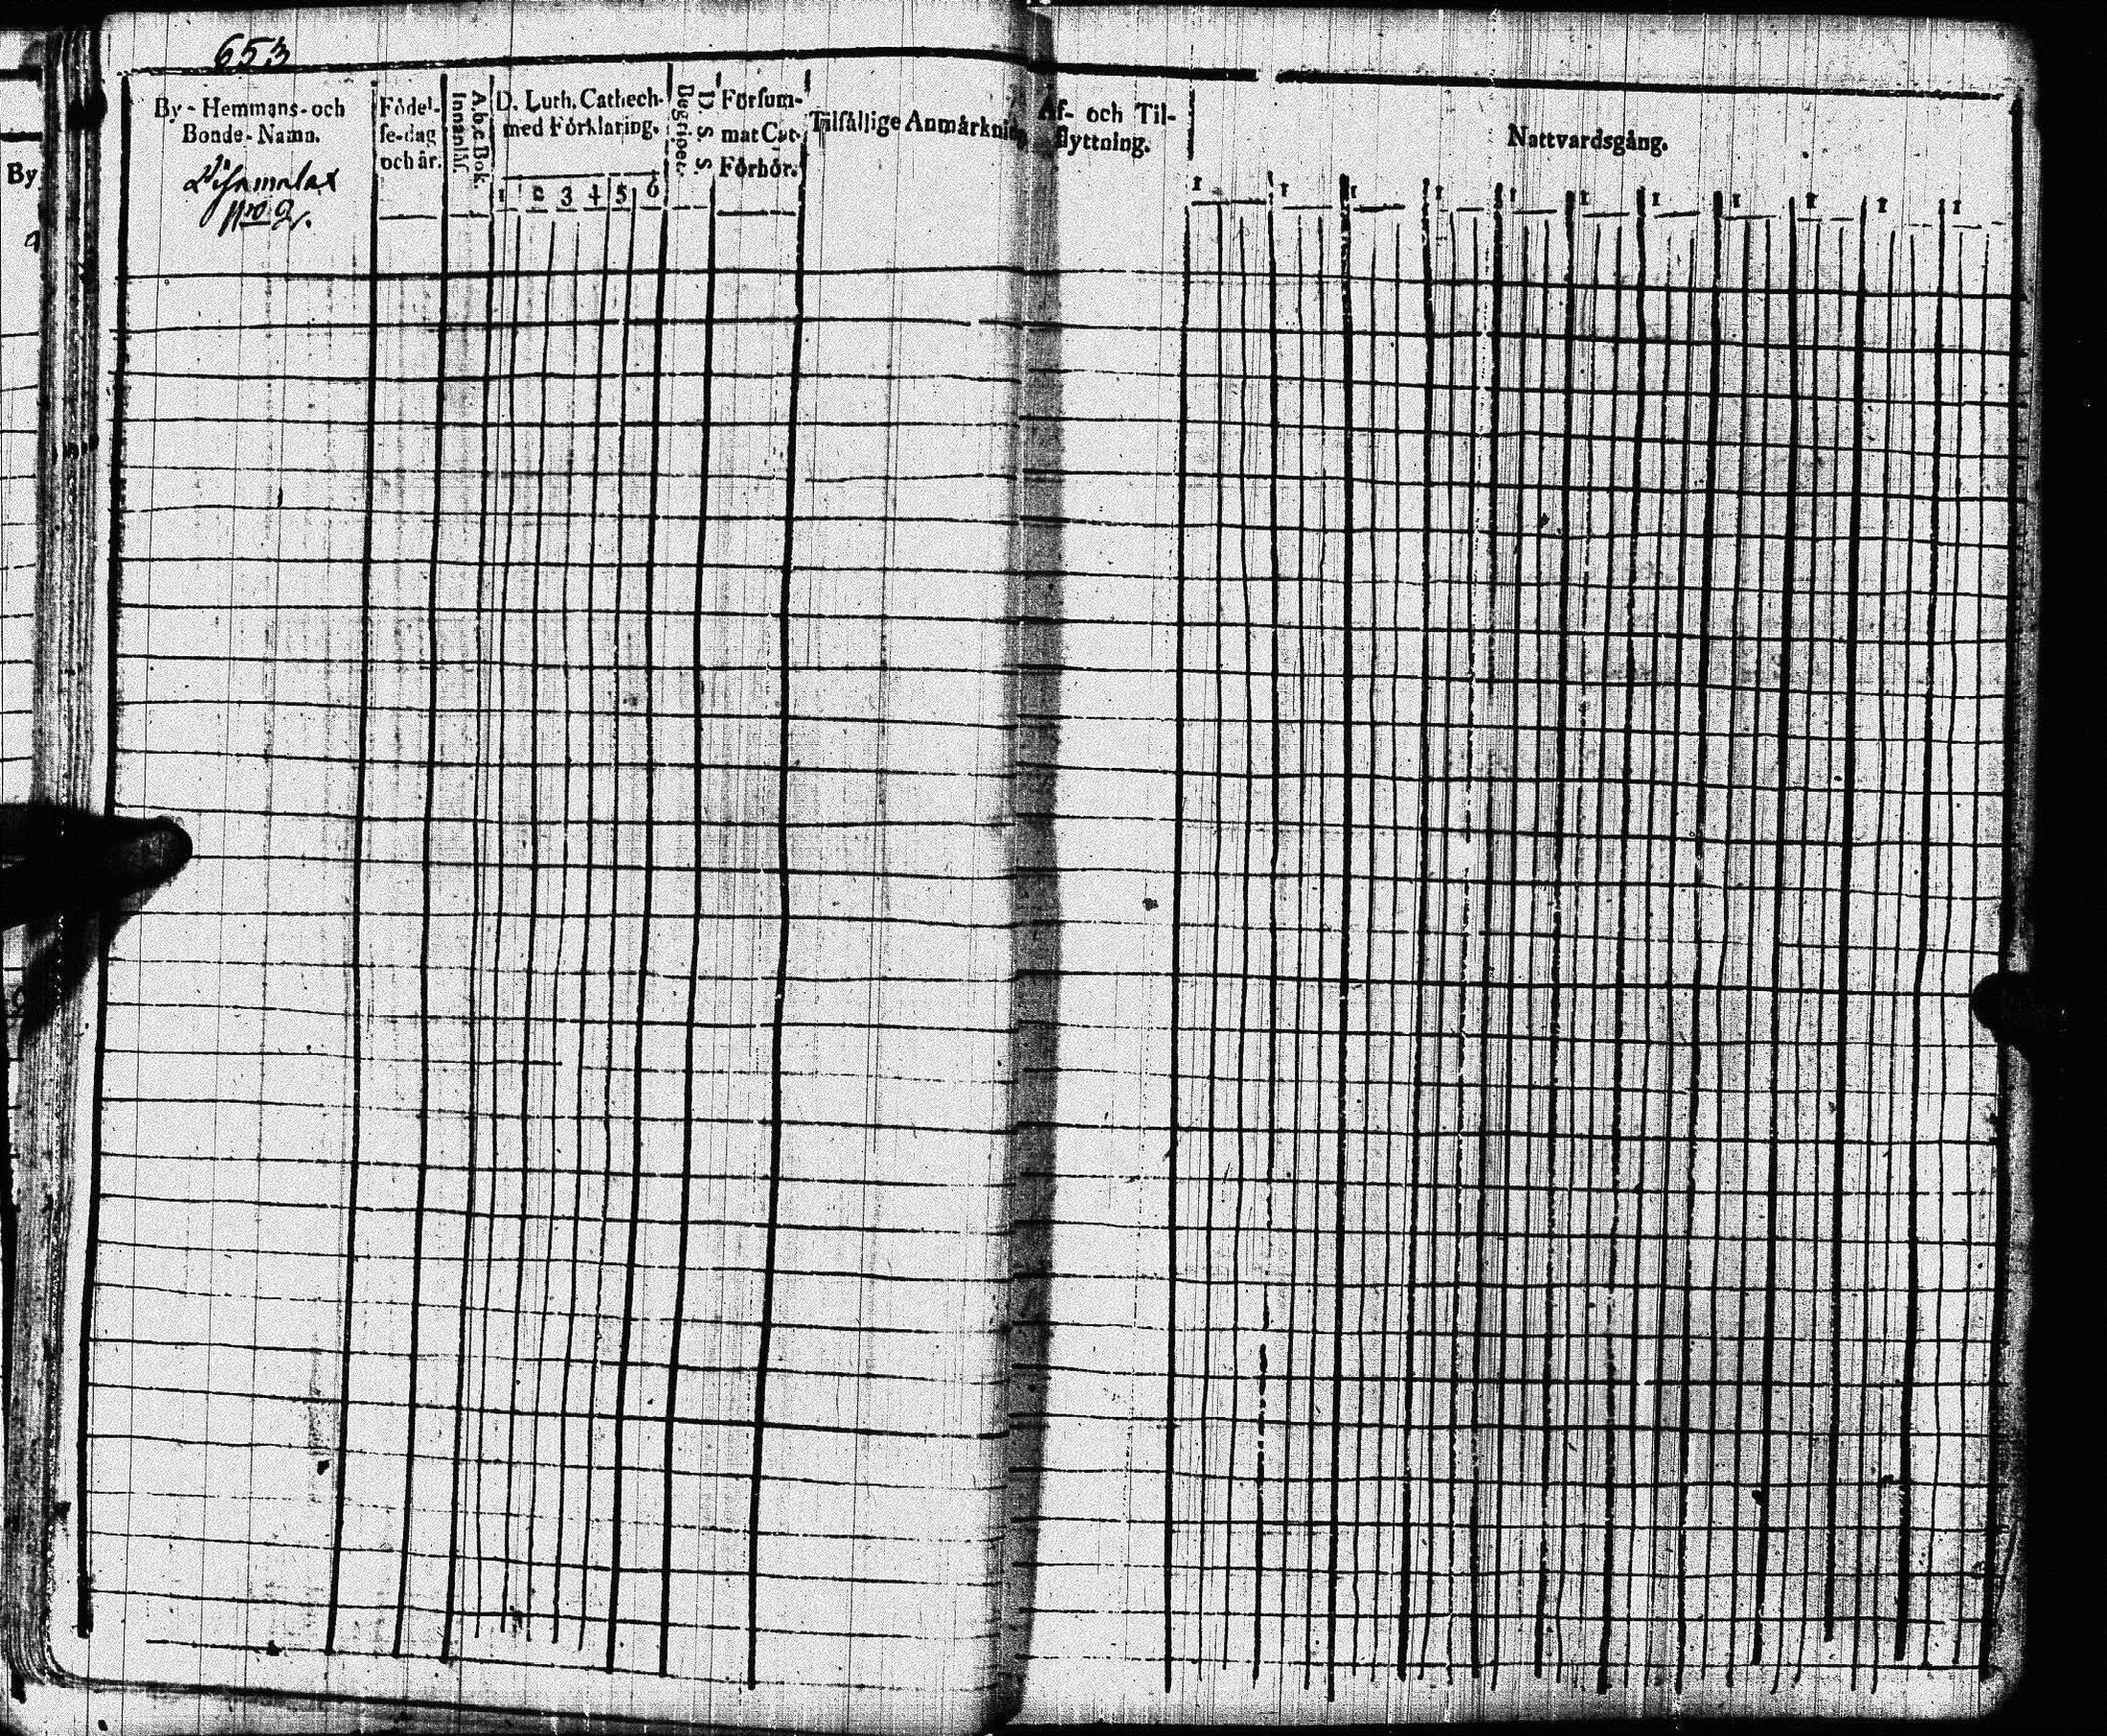 653
By - Hemmans - och
Bonde - Namn.
Nro 9.
Födel-
se-dag
och år.
A.b.c Bok.
Innanläs.
D. Luth. Cathech.
med Förklaring.
1 2 3 4 5 6
D. S. S.
Begriper.
Försum-
mat Cat.
Förhör.
Tilfällige Anmärkning
Af- och Til-
flyttning.
Nattvardsgång.
1 1 1 1 1 1 1 1 1 1 1
By